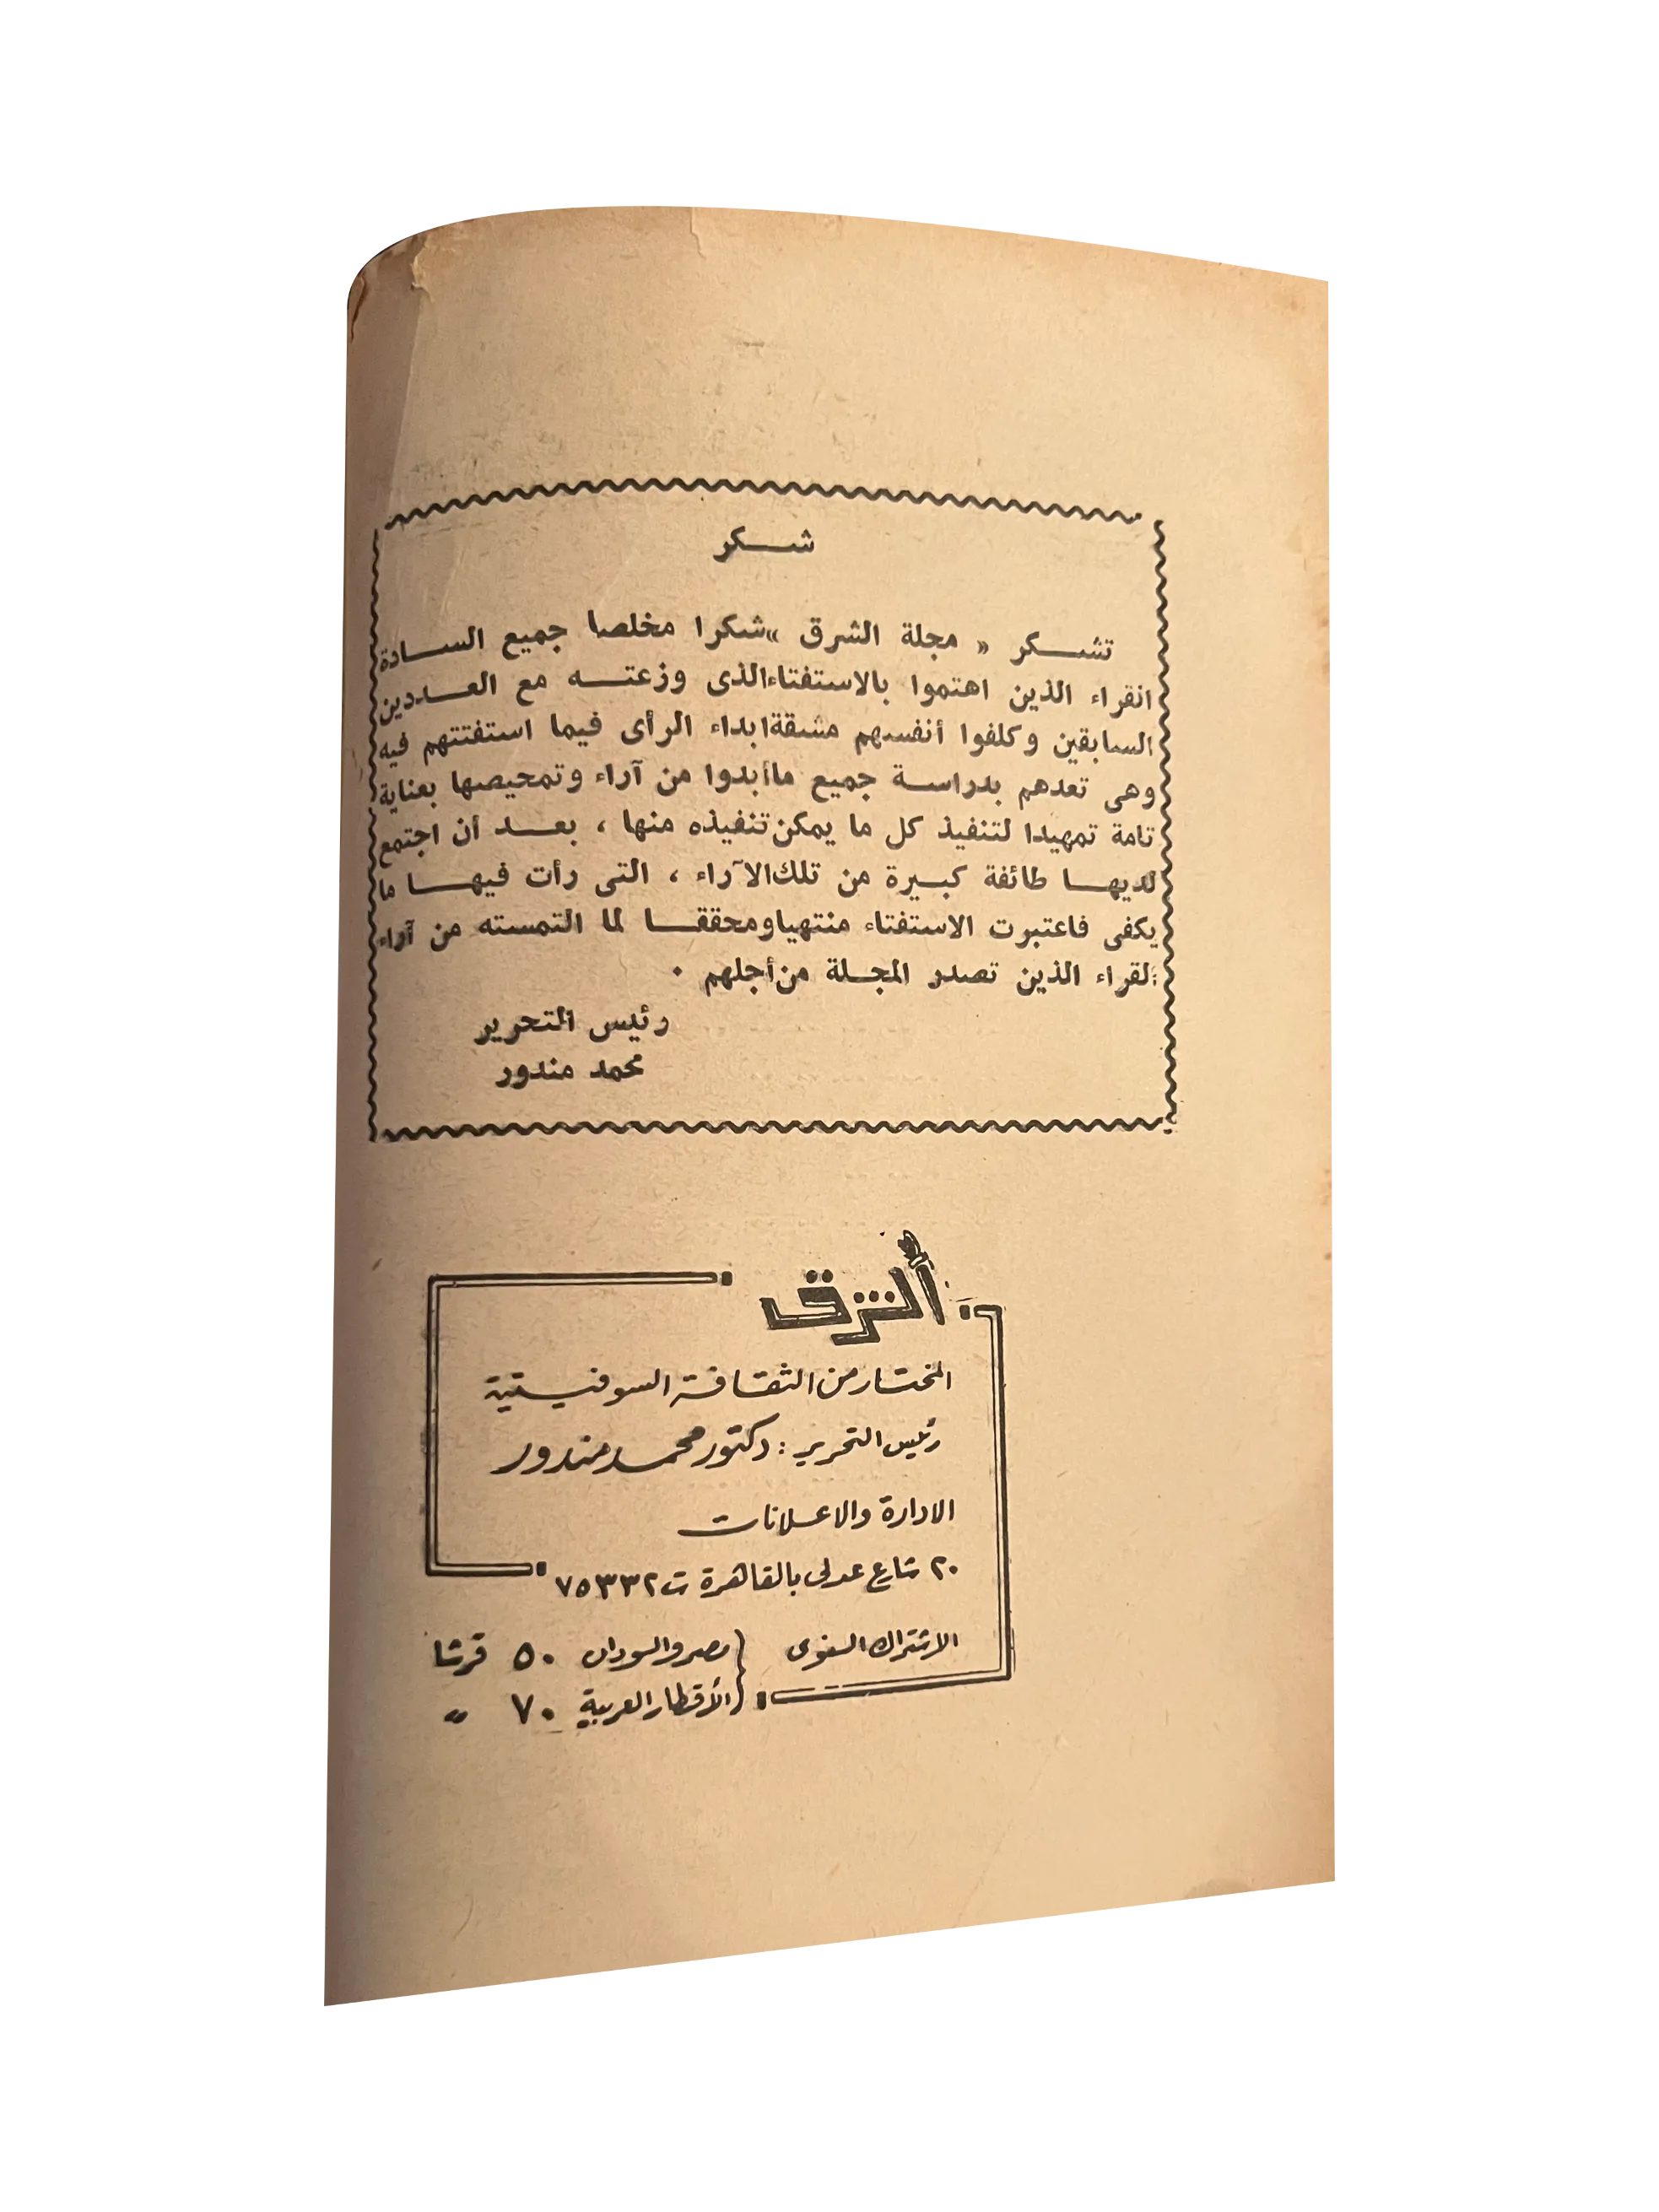 شكر
تشكر « مجلة الشرق » شكرا مخلصا جميع السادة
القراء الذين اهتموا بالاستفتاء الذى وزعته مع العددين
السابقين وكلفوا أنفسهم مشقة ابداء الرأى فيما استفتتهم فيه
وهى تعدهم بدراسة جميع ما أبدوا من آراء وتمحيصها بعناية
تامة تمهيدا لتنفيذ كل ما يمكن تنفيذه منها ، بعد أن اجتمع
لديها طائفة كبيرة من تلك الآراء ، التى رأت فيها ما
يكفى فاعتبرت الاستفتاء منتهيا ومحققا لما التمسته من آراء
القراء الذين تصدر المجلة من أجلهم .
رئيس التحرير
محمد مندور
الشرق
المختار من الثقافة السوفيتية
رئيس التحرير : دكتور محمد مندور
الادارة والاعلانات
٢٠ شارع عدلى بالقاهرة ت ٧٥٣٣٢
الاشتراك السنوى { مصر والسودان ٥٠ قرشا
الأقطار العربية ٧٠ »